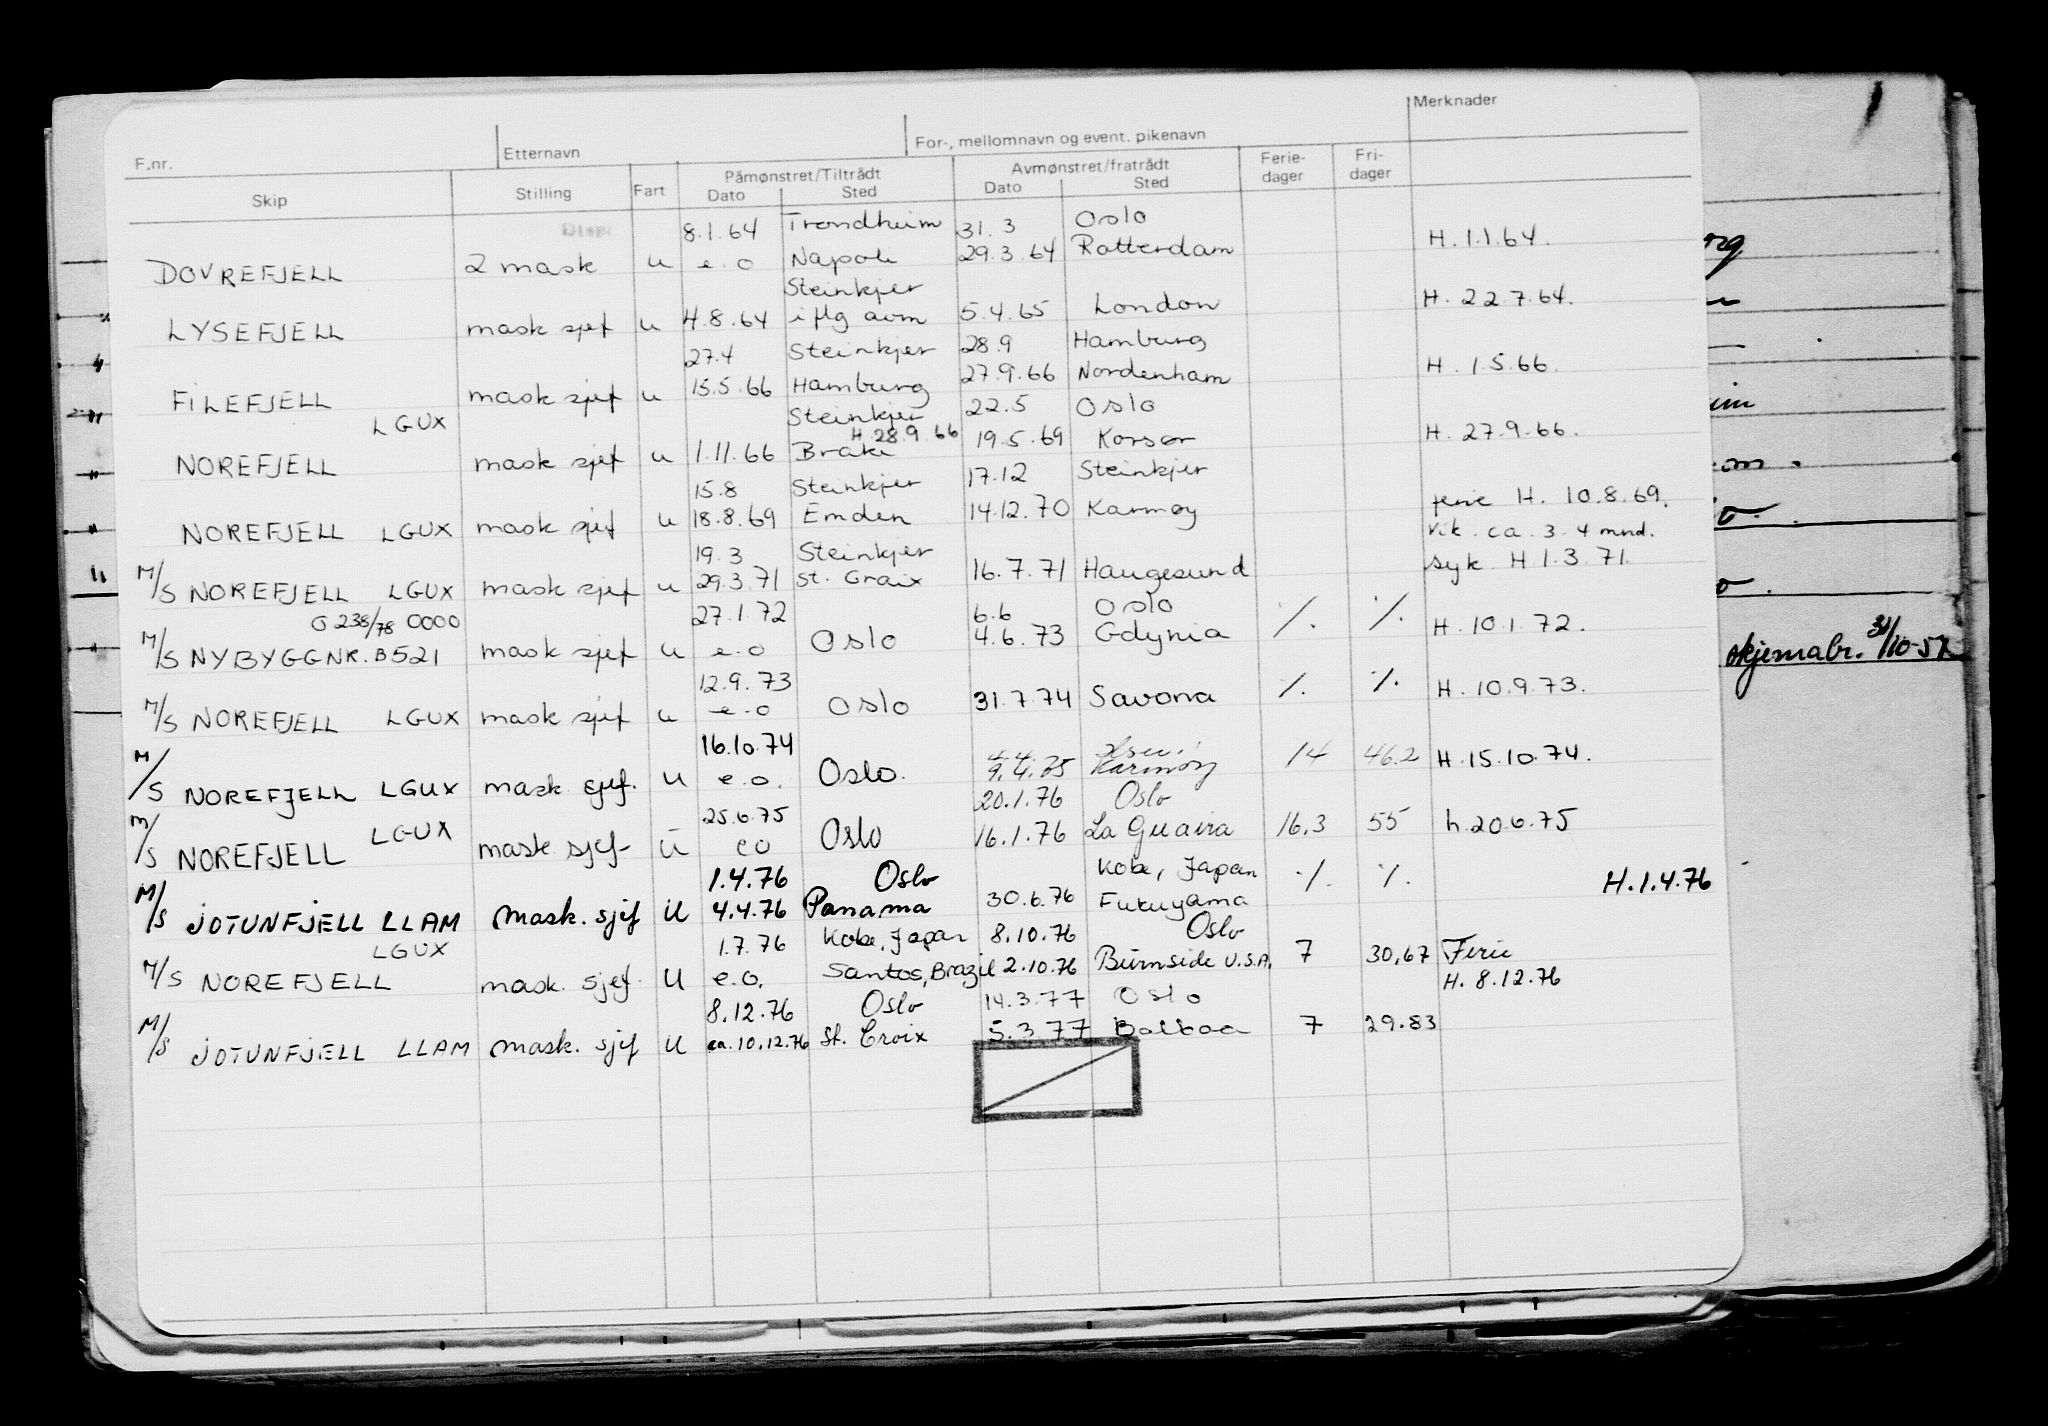 F.nr. Etternavn For-, mellomnavn og event. pikenavn Merknader
Skip Stilling Fart Påmønstret/Tiltrådt Dato Sted Avmønstret/fratrådt Dato Sted Ferie-dager Fri-dager
8.1.64 Trondheim 31.3 Oslo
DOVREFJELL 2 mask u e.o Napoli 29.3.64 Rotterdam H. 1.1.64.
Steinkjer
LYSEFJELL mask sjef u 4.8.64 iflg avm 5.4.65 London H. 22.7.64.
27.4 Steinkjer 28.9 Hamburg
FILEFJELL mask sjef u 15.5.66 Hamburg 27.9.66 Nordenham H. 1.5.66.
LGUX Steinkjer 22.5 Oslo
H. 28.9.66
NOREFJELL mask sjef u 1.11.66 Brake 19.5.69 Korsør H. 27.9.66.
15.8 Steinkjer 17.12 Steinkjer
NOREFJELL LGUX mask sjef u 18.8.69 Emden 14.12.70 Karmøy ferie H. 10.8.69.
Vik. ca. 3-4 mnd.
19.3 Steinkjer
M/S NOREFJELL LGUX mask sjef u 29.3.71 St. Graix 16.7.71 Haugesund syk H 1.3.71.
G 238/78 0000 27.1.72 6.6 Oslo
M/S NYBYGGNR. B521 mask sjef u e.o Oslo 4.6.73 Gdynia ·/. ·/. H. 10.1.72.
12.9.73
M/S NOREFJELL LGUX mask sjef u e.o Oslo 31.7.74 Savona ·/. ·/. H. 10.9.73.
16.10.74
M/S NOREFJELL LGUX mask sjef. u e.o. Oslo. Karmøy 14 46.2 H. 15.10.74.
25.6.75 20.1.76 Oslo
M/S NOREFJELL LGUX mask sjef u eo Oslo 16.1.76 La Guaira 16.3 55 h.20.6.75
1.4.76 Oslo Kobe, Japan
M/S JOTUNFJELL LLAM mask. sjef U 4.4.76 Panama 30.6.76 Fukuyama ·/. ·/. H.1.4.76
LGUX 1.7.76 Kobe, Japan 8.10.76 Oslo
M/S NOREFJELL mask. sjef. U e.o. Santos, Brazil 2.10.76 Burnside U.S.A. 7 30,67 Ferie
H. 8.12.76
8.12.76 Oslo 14.3.77 Oslo
M/S JOTUNFJELL LLAM mask. sjef U ca. 10.12.76 St. Croix 5.3.77 Balboa 7 29.83
skjemabr. 31/10-57